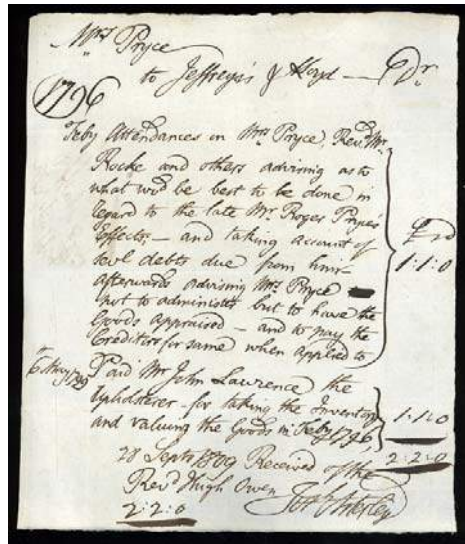 Mrs Pryce
to Jeffreys & Lloyd — Dr
1796
Feby Attendances on Mrs Pryce, Revd Mr
Rocke and others advising as to
what wod be best to be done in
regard to the late Mr Roger Pryce's
Effects, — and taking account of
sevl debts due from him —
afterwards advising Mrs Pryce
not to administer but to have the
Goods appraised — and to pay the
Creditors for same when applied to
1:1:0
Paid Mr John Lawrence the
Upholsterer for taking the Inventory
and valuing the Goods in Feby 1796
1:1:0
2:2:0
28 Septr 1809 Received of the
Revd Hugh Owen
2:2:0